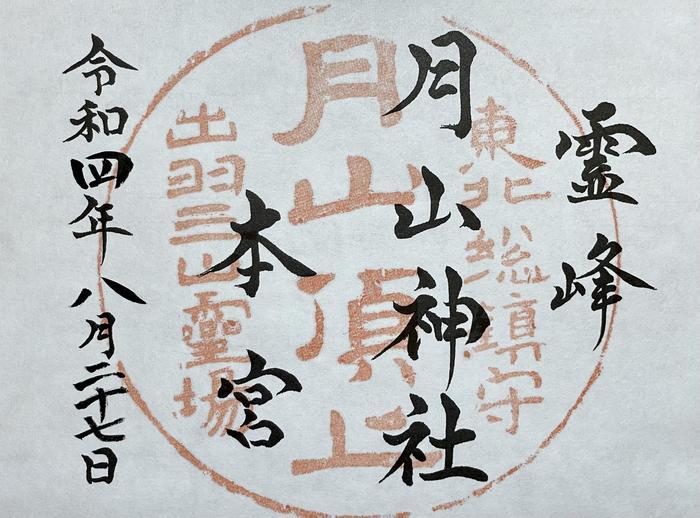 霊峰
月山神社
本宮
令和四年八月二十七日
東北総鎮守
月山頂上
出羽三山霊場